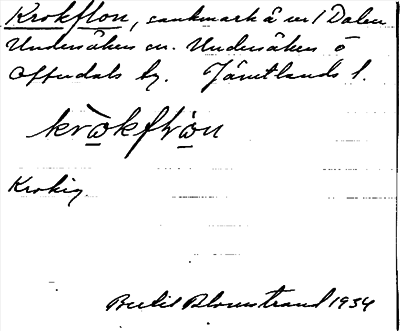 Krokflon, sankmark å m/ Dalen
Undersåkers sn. Undersåkers o
Offerdals by. Jämtlands l.
kròkfɬòn
Krokig.
Bertil Blomstrand 1934